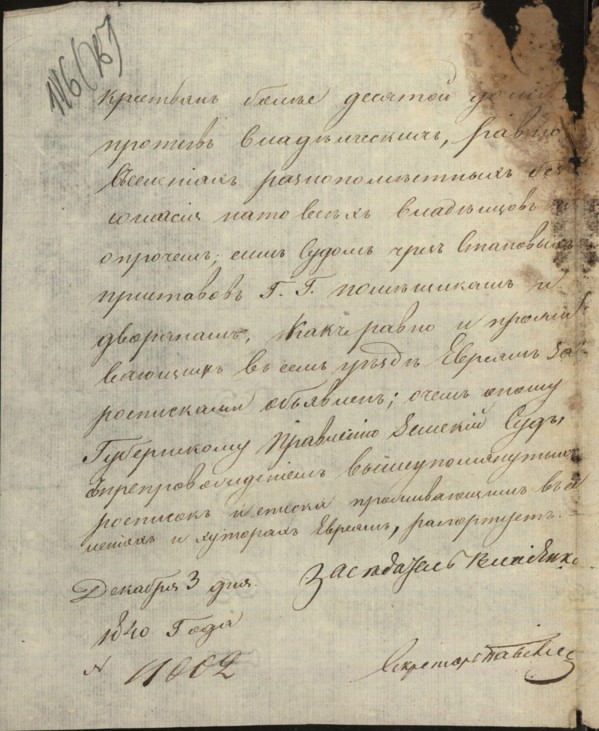 116 (15)
крестьянъ более десятой доли
противъ владѣльческихъ, равно
въ селенияхъ разнопоместныхъ без
согласия на то всехъ владѣльцовъ и
о прочемъ; симъ Судомъ чрезъ Становыхъ
приставовъ Г. Г. помѣщикамъ и
дворянамъ, какъ равно и прожи
вающимъ въ семъ уездѣ Евреямъ за
росписками объявленъ; о чемъ оному
Губернскому Правлению Земский Судъ
съ препровождениемъ вышеупомянутыхъ
росписокъ и списка проживающимъ въ се
ленияхъ и хуторахъ Евреямъ, рапортуетъ.
Декабря 3 дня
1840 Года
№ 11002
Заседатель
Секретарь